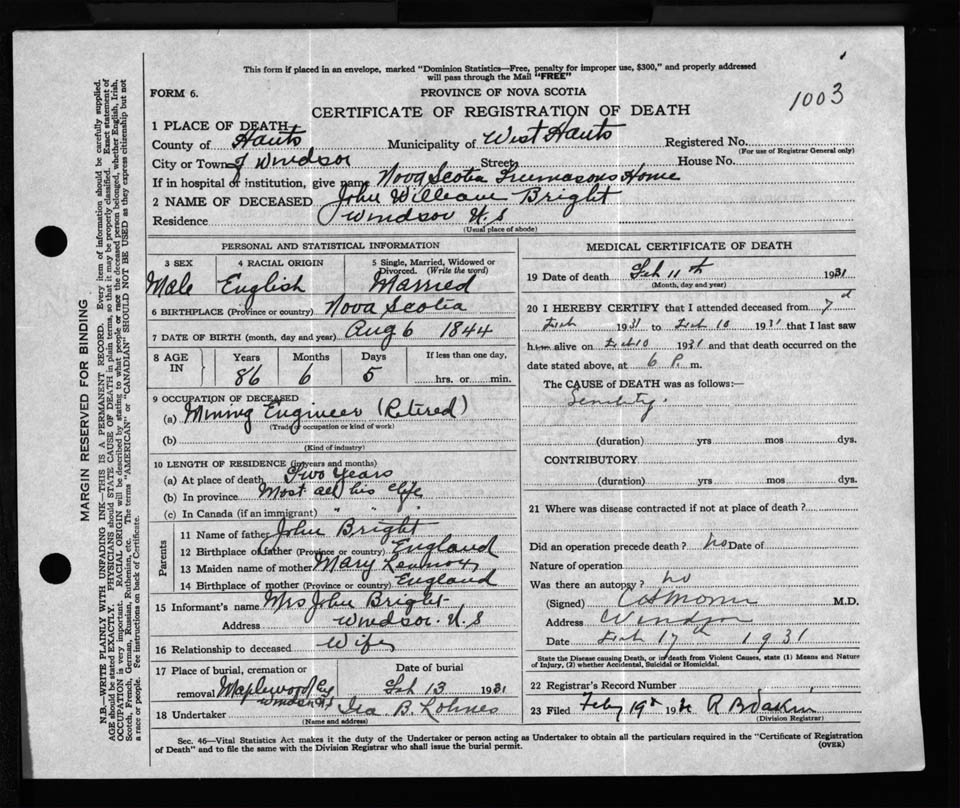 This form if placed in an envelope, marked "Dominion Statistics—Free, penalty for improper use, $300," and properly addressed
will pass through the Mail "FREE"
FORM 6.
PROVINCE OF NOVA SCOTIA
1003
CERTIFICATE OF REGISTRATION OF DEATH
1 PLACE OF DEATH
County of Hants Municipality of West Hants Registered No.
(For use of Registrar General only)
City or Town of Windsor Street House No.
If in hospital or institution, give name Nova Scotia Freemasons Home
2 NAME OF DECEASED John William Bright
Residence Windsor N.S
(Usual place of abode)
PERSONAL AND STATISTICAL INFORMATION
3 SEX 4 RACIAL ORIGIN 5 Single, Married, Widowed or Divorced. (Write the word)
Male English Married
6 BIRTHPLACE (Province or country) Nova Scotia
7 DATE OF BIRTH (month, day and year) Aug 6 1844
8 AGE IN Years Months Days If less than one day,
86 6 5 hrs. or min.
9 OCCUPATION OF DECEASED
(a) Mining Engineer (Retired)
(Trade, occupation or kind of work)
(b)
(Kind of industry)
10 LENGTH OF RESIDENCE (in years and months)
(a) At place of death Two Years
(b) In province Most all his life
(c) In Canada (if an immigrant) " " " "
Parents
11 Name of father John Bright
12 Birthplace of father (Province or country) England
13 Maiden name of mother Mary
14 Birthplace of mother (Province or country) England
15 Informant's name Mrs John Bright
Address Windsor. N.S
16 Relationship to deceased Wife
17 Place of burial, cremation or Date of burial
removal Maplewood Windsor Feb 13 1931
18 Undertaker Ira B.
(Name and address)
MEDICAL CERTIFICATE OF DEATH
19 Date of death Feb 11th 1931
(Month, day and year)
20 I HEREBY CERTIFY that I attended deceased from 7
Feb 1931 to Feb 10 1931 that I last saw
him alive on Feb 10 1931 and that death occurred on the
date stated above, at 6 P. m.
The CAUSE of DEATH was as follows:—
Senility.
(duration) yrs mos dys.
CONTRIBUTORY
(duration) yrs mos dys.
21 Where was disease contracted if not at place of death?
Did an operation precede death? no Date of
Nature of operation
Was there an autopsy? no
(Signed) M.D.
Address Windsor
Date Feb 17th 1931
State the Disease causing Death, or in death from Violent Causes, state (1) Means and Nature
of Injury, (2) whether Accidental, Suicidal or Homicidal.
22 Registrar's Record Number
23 Filed Feby 19th
(Division Registrar)
Sec. 46—Vital Statistics Act makes it the duty of the Undertaker or person acting as Undertaker to obtain all the particulars required in the "Certificate of Registration
of Death" and to file the same with the Division Registrar who shall issue the burial permit.
(OVER)
MARGIN RESERVED FOR BINDING
N.B.—WRITE PLAINLY WITH UNFADING INK—THIS IS A PERMANENT RECORD. Every item of information should be carefully supplied.
AGE should be stated EXACTLY. PHYSICIANS should STATE CAUSE OF DEATH in plain terms, so that it may be properly classified. Exact statement of
OCCUPATION is very important. RACIAL ORIGIN will be described by stating to what people or race the deceased person belonged, whether English, Irish,
Scotch, French, German, Russian, Ruthenian, etc. The terms "AMERICAN" or "CANADIAN" SHOULD NOT BE USED as they express citizenship but not
a race or people. Fee instructions on back of Certificate.